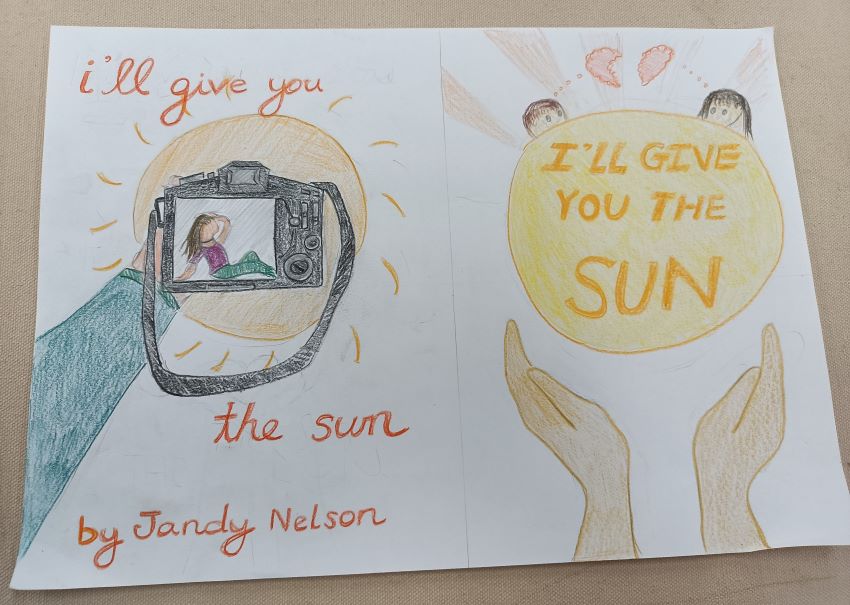 i'll give you
the sun
by Jandy Nelson
I'LL GIVE
YOU THE
SUN